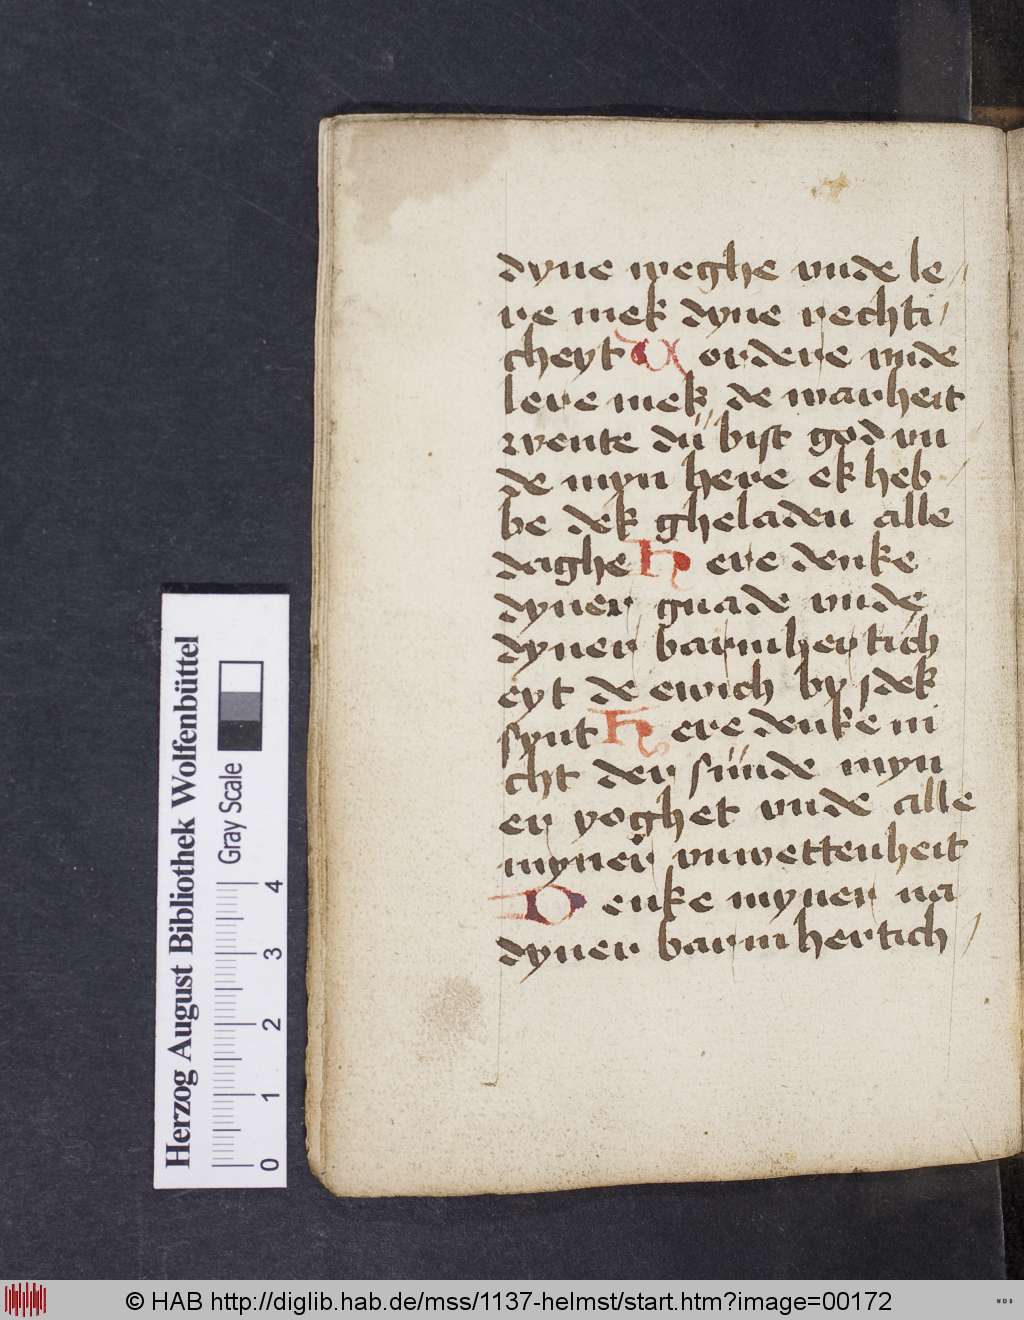 dyne weghe vnde le/
re mek dyne rechti/
cheyt Vordere vnde
lere mek de warheit
wente dü bist god vn
de myn here ek heb/
be dek gheladen alle
daghe Here denke
dyner gnade vnde
dyner barmhertich
eyt de ewich by dek
synt Here denke ni
cht der sünde myn
er yoghet vnde alle
myner vnwettenheit
Denke myner na
dyner barmhertich/
Herzog August Bibliothek Wolfenbüttel
Gray Scale
0 1 2 3 4
© HAB http://diglib.hab.de/mss/1137-helmst/start.htm?image=00172